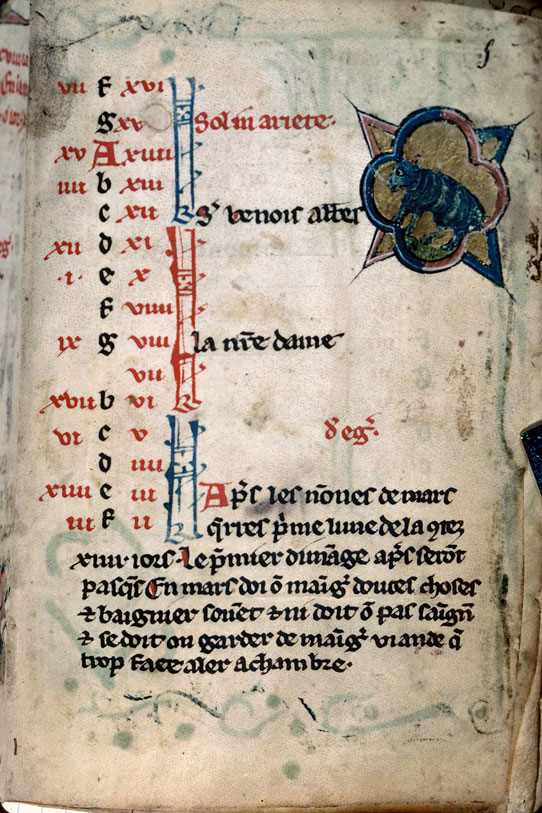 vii f xvi
g xv Sol in ariete.
xv A xiiii
iiii b xiii
c xii S. benois abbes
xii d xi
.i. e x
f viiii
ix g viii la nr̃e dame
vii
xvii b vi
vi c v d' eg̃.
d iiii
xiiii e iii Ap̃s les nones de mars
iii f ii q̃res p̃me lune de la 9tez
xiiii. iors. Le p̃mier dimãge ap̃s serõt
pasq̃s En mars doi õ mãg̃ douces choses
⁊ baignier souẽt ⁊ ni doit õ pas saign̄
⁊ se doit on garder de mãg̃ viande q̃
trop face aler a chambre.